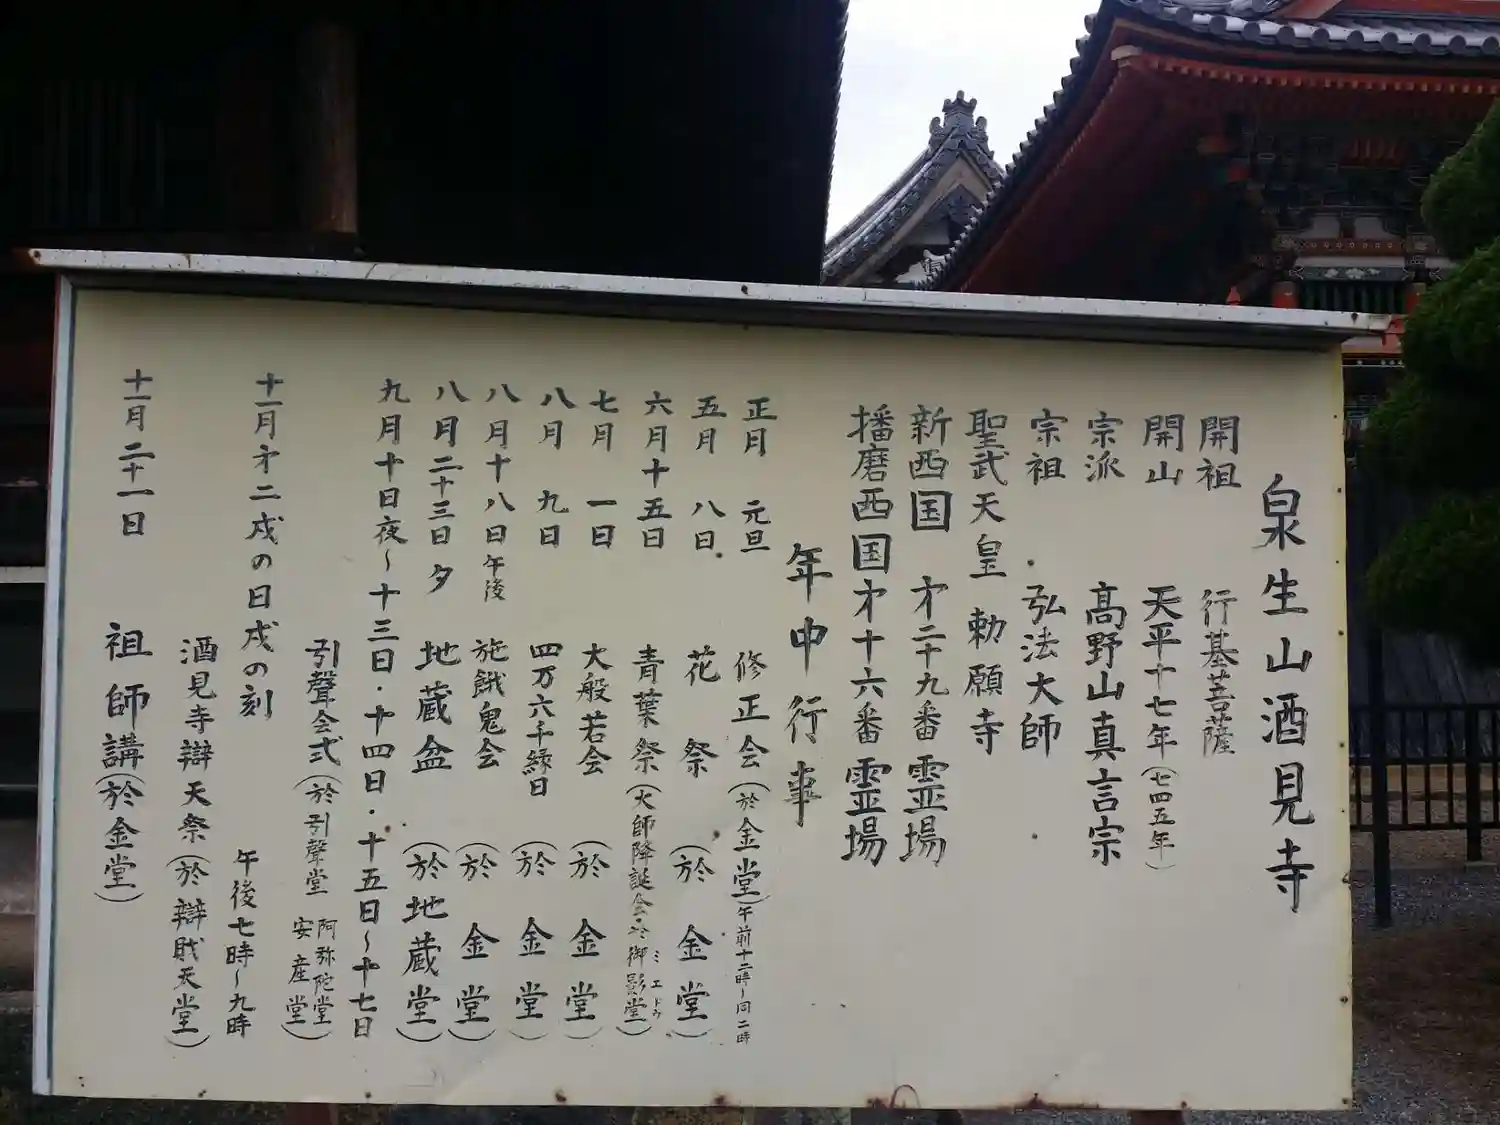 泉生山酒見寺
開祖 行基菩薩
開山 天平十七年（七四五年）
宗派 高野山真言宗
宗祖 弘法大師
聖武天皇 勅願寺
新西国 才二十九番 霊場
播磨西国才十六番 霊場
年中行事
正月 元旦 修正会（於金堂）午前十二時～同二時
五月 八日 花祭（於 金堂）
六月十五日 青葉祭（大師降誕会 於御影堂）ミエドウ
七月 一日 大般若会（於 金堂）
八月 九日 四万六千縁日（於 金堂）
八月十八日午後 施餓鬼会（於 金堂）
八月二十三日夕 地蔵盆（於地蔵堂）
九月十日夜～十三日・十四日・十五日～十七日
引聲会式（於引聲堂 阿弥陀堂 安産堂）
十一月才二戌の日戌の刻 午後七時～九時
酒見寺辯天祭（於辯財天堂）
十一月二十一日 祖師講（於金堂）